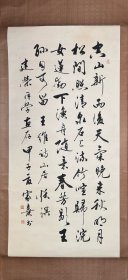 空山新雨後天氣晚来秋明月
松間照清泉石上流竹喧歸浣
女莲動下漁舟随意春芳歇王
孫自可留 王維詩山居秋暝
甲子夏 書